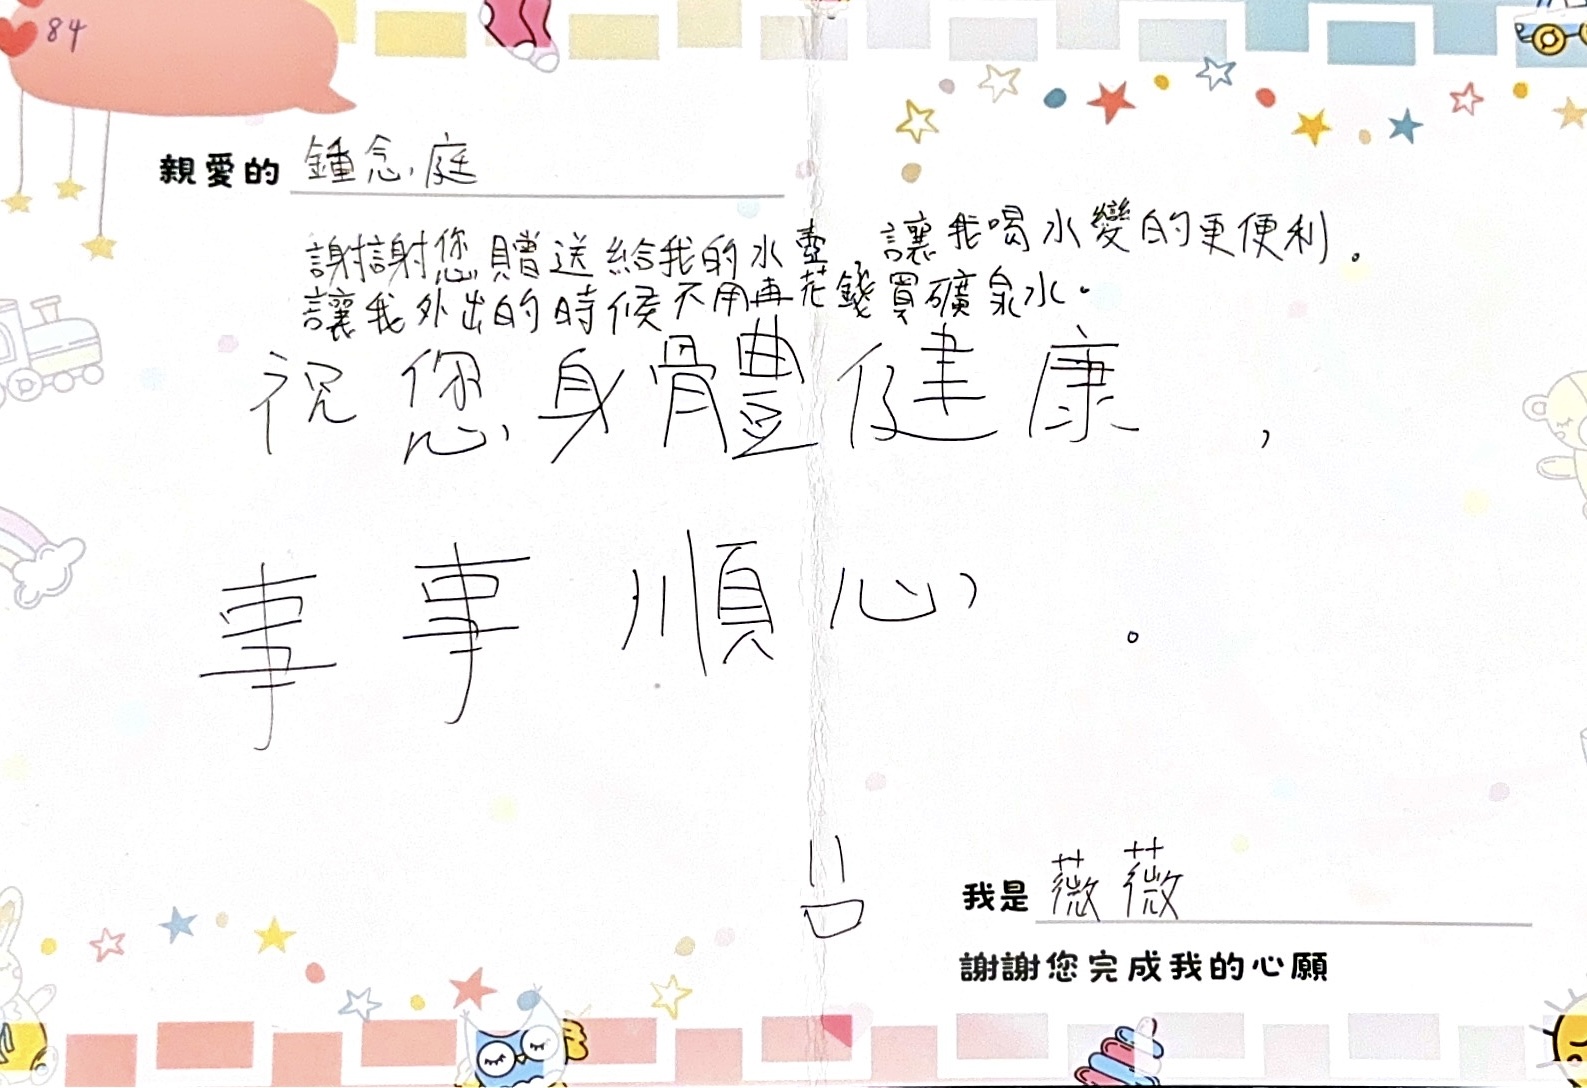 84
親愛的 鍾念庭
謝謝您贈送給我的水壺,讓我喝水變的更便利。
讓我外出的時候不用再花錢買礦泉水。
祝您身體健康,
事事順心。
我是 薇薇
謝謝您完成我的心願